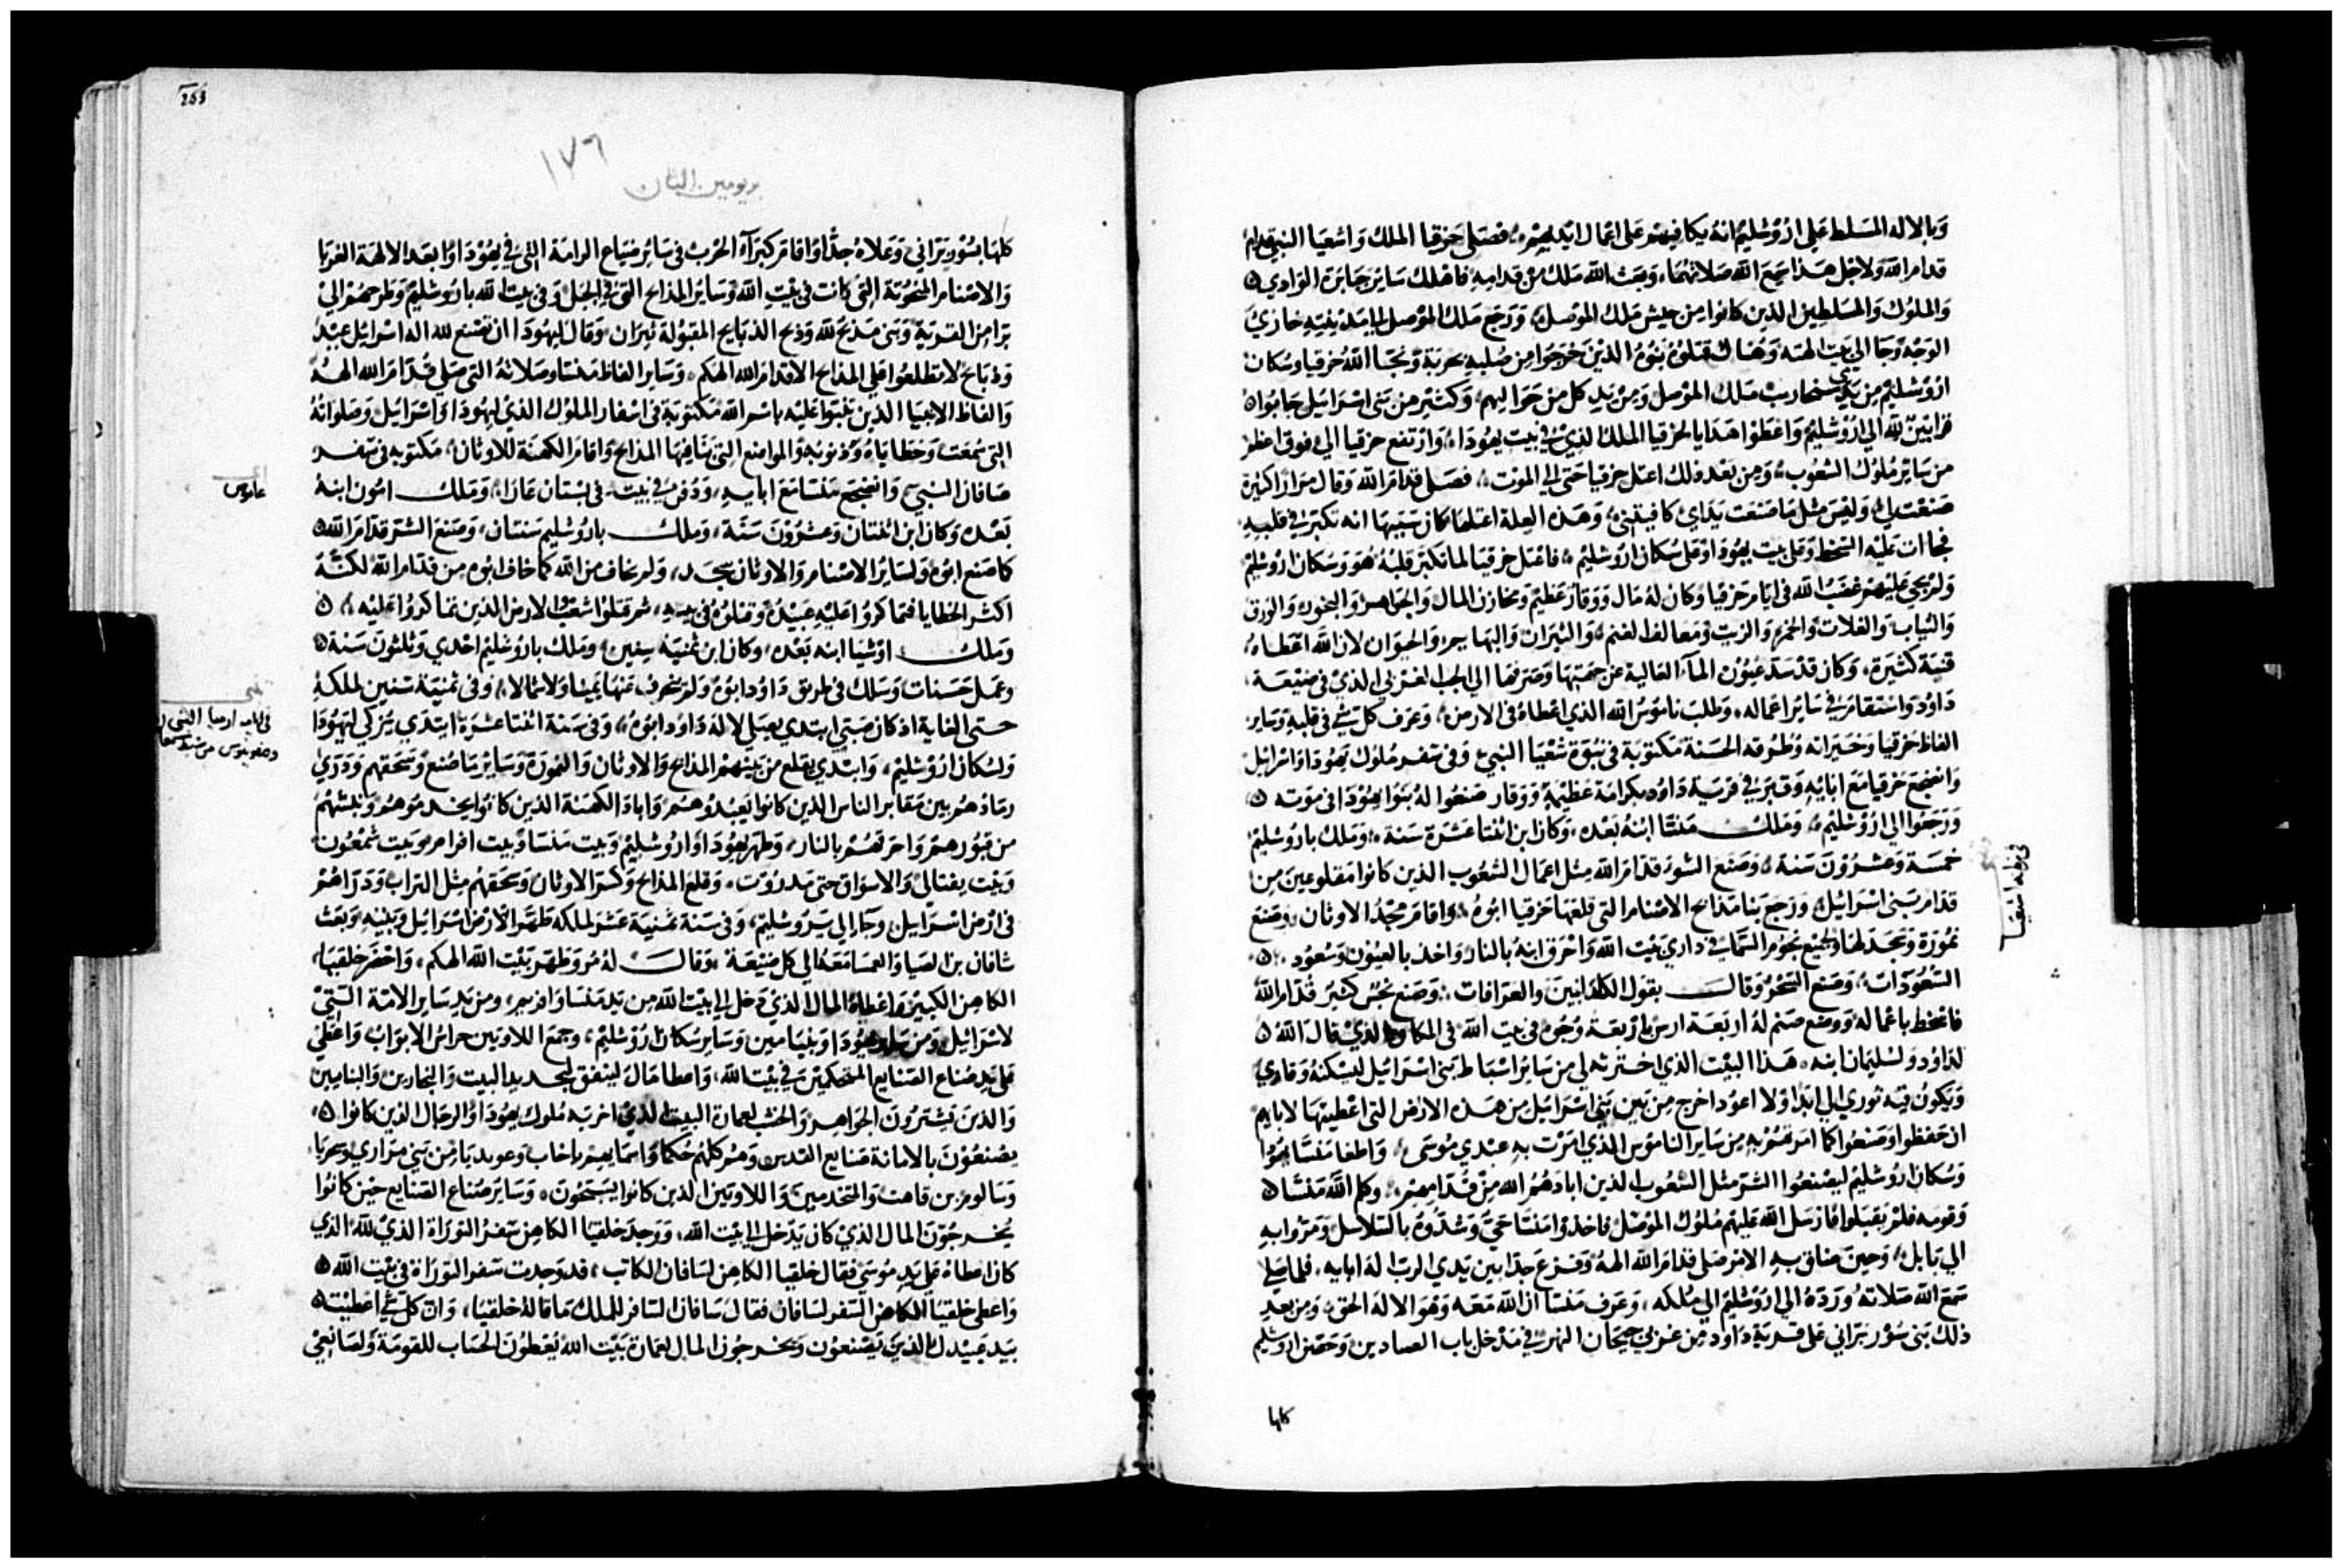 وبالاله المسلط علي اروشليم انه يكافيهم علي اعمال ايديهم فصلي حزقيا الملك واشعيا النبي قدام
قدام الله ولاجل هذا سمع الله صلاتهما وبعث الله ملاك من قدامه فاهلك ساير جبابرة الوادي
والملوك والمسلطين الذين كانوا من جيش ملك الموصل ورجع ملك الموصل الي مدينته خازي
الوجه وجا الي بيت الهته وهناك قتلوه بنوه الذين خرجوا من صلبه بحربة ونجا الله حزقيا وسكان
اروشليم من يدي سنحاريب ملك الموصل ومن يد كل من حواليهم وكثير من بني اسرائيل جابوا
قرابين لله الي اروشليم واعطوا هدايا لحزقيا الملك الذي في بيت يهودا وارتفع حزقيا الي فوق اعظم
من ساير ملوك الشعوب ومن بعد ذلك اعتل حزقيا حتي الي الموت فصلي قدام الله وقال مرارا كثيرة
صنعت بي وليس مثل ما صنعت يداي كافيتني وهذه العلة اعتلها كان سببها انه تكبر في قلبه
فجا ان عليه السخط وعلي بيت يهودا وعلي سكان اروشليم فاعتل حزقيا لما تكبر قلبه هو وسكان اروشليم
ولم يجي عليهم غضب الله في ايام حزقيا وكان له مال ووقار عظيم ومخازن المال والجواهر والبخور والورق
والثياب والغلات والخمر والزيت ومعالف الغنم والثيران والبهايم والحيوان لان الله اعطاه
قنية كثيرة وكان قد سد عيون الماء العالية عن جهتها وصرفها الي الجب الغربي الذي في ضيعة
داود واستقام في ساير اعماله وطلب ناموس الله الذي اعطاه في الارض وعرف كل شي في قلبه وساير
الفاظ حزقيا وخيراته وطرقه الحسنة مكتوبة في نبوة شعيا النبي وفي سفر ملوك يهودا واسرائيل
وانضجع حزقيا مع ابايه وقبر في قرية داود بكرامة عظيمة ووقار صنعوا له بنوا يهودا في موته
ورجعوا الي اروشليم وملك منشا ابنه بعده وكان ابن اثنتا عشرة سنة وملك باروشليم
خمسة وعشرون سنة وصنع الشر قدام الله مثل اعمال الشعوب الذين كانوا مقلوعين من
قدام بني اسرائيل ورجع بنا مذابح الاصنام التي قلعها حزقيا ابوه واقام مجد الاوثان وصنع
نمورة وسجد لها ولجميع نجوم السما في داري بيت الله واحرق ابنه بالنار واخذ بالعيون وسعود
السعودات وصنع السحر وقال بقول الكلدانيين والعرافات وصنع نجس كثير قدام الله
فاسخط باعماله ووضع صنم له اربعة ارس باربعة وجوه في بيت الله في المكان الذي قال الله
لداود ولسليمان ابنه هذا البيت الذي اخترته لي من ساير اسباط بني اسرائيل ليسكنه وقاري
ويكون فيه نوري الي ابدا ولا اعود اخرج من بين بني اسرائيل من هذه الارض التي اعطيتها لابايهم
ان حفظوا وصنعوا كما امرتهم به من ساير الناموس الذي امرت به عبدي موسي واطغا منشا يهودا
وسكان اروشليم ليصنعوا الشر مثل الشعوب الذين ابادهم الله من قدامهم وكلم الله منشا
وقومه فلم يقبلوا فارسل الله عليهم ملوك الموصل فاخذوا منشا حي وشدوه بالسلاسل ومروا به
الي بابل وحين ضاق به الامر صلي قدام الله الهه وفزع جدا بين يدي الرب اله ابايه فلما صلي
سمع الله صلاته ورده الي اروشليم الي ملكه وعرف منشا ان الله معه وهو الاله الحق ومن بعد
ذلك بني سور براني علي قرية داود من غربي جيحان النهر في مدخل باب الصيادين وحصن اروشليم
كلها
في نبوة اشعيا
253
١٧٦
بريومين الثان
كلها بسور براني وعلاه جدا واقام كبراء الحرب في ساير ضياع الرامة التي في يهودا وابعد الالهة الغربا
والاصنام المنحوتة التي كانت في بيت الله وساير المذابح التي في الجبل وفي بيت الله باروشليم وطرحهم الي
برا من القرية وبني مذبح لله وذبح الذبايح المقبولة نيران وقال ليهودا ان تصنع لله اله اسرائيل عبيد
وذبايح لا تطلعوا علي المذابح الا قدام الله الهكم وساير الفاظ منشا وصلاته التي صلي قدام الله الهه
والفاظ الانبيا الذين تنبوا عليه باسم الله مكتوبة في اسفار الملوك الذي ليهودا واسرائيل وصلواته
التي سمعت وخطاياه وذنوبه والمواضع التي بنا فيها المذابح واقام الكهنة للاوثان مكتوبه في سفر
صافان النبي وانضجع منشا مع ابايه ودفن في بيته في بستان عازا وملك امون ابنه
بعده وكان ابن اثنتان وعشرون سنة وملك باروشليم سنتان وصنع الشر قدام الله
كما صنع ابوه ولساير الاصنام والاوثان سجد ولم يخاف من الله كما خاف ابوه من قدام الله لكنه
اكثر الخطايا فتماكروا عليه عبيده وقتلوه في بيته ثم قتلوا شعب الارض الذين تماكروا عليه
وملك اوشيا ابنه بعده وكان ابن ثمنية سنين وملك باروشليم احدي وثلثون سنة
وعمل حسنات وسلك في طريق داود ابوه ولم ينحرف عنها يمينا ولا شمالا وفي ثمنية سنين لملكه
حتي الغاية اذ كان صبي ابتدي يصلي لاله داود ابوه وفي سنة اثنتا عشرة ابتدي يزكي ليهودا
ولسكان اروشليم وابتدي يقلع من بينهم المذابح والاوثان والنمورة وساير ما صنع وسحقهم وذري
رمادهم بين مقابر الناس الذين كانوا يعبدوهم واباد الكهنة الذين كانوا يخدموهم ونبشهم
من قبورهم واحرقهم بالنار وطهر يهودا واروشليم وبيت منشا وبيت افرام وبيت شمعون
وبيت يفتالي والاسواق حتي مدروت وقلع المذابح وكسر الاوثان وسحقهم مثل التراب وذراهم
في ارض اسرائيل وجا الي يروشليم وفي سنة ثمنية عشر لملكه طهر الارض اسرائيل وبيته وبعث
شافان بن اصليا والعمسا معه الي كل ضيعة وقال لهم مروا طهر بيت الله الهكم واحضر خلقيا
الكاهن الكبير واعطاه المال الذي دخل الي بيت الله من يد منشا وافريم ومن يد ساير الامة التي
لاسرائيل ومن ساير يهودا وبنيامين وساير سكان اروشليم وجمع اللاويين حراس الابواب واعطي
علي يد صناع الصنايع المحكمين في بيت الله واعطا مال لينفق لتجديد البيت والنجارين والبنايين
والذين يشترون الجواهر والخشب لعمارة البيت الذي اخربه ملوك يهودا والرجال الذين كانوا
يصنعون بالامانة صنايع القدس وهم كلهم حكما واسمايهم ياخاب وعوبديا من بني مراري وزحريا
وسالوم بن قاهت والمتخدمين واللاويين الذين كانوا يسبحون وساير صناع الصنايع حين كانوا
يخرجون المال الذي كان يدخل الي بيت الله ووجد خلقيا الكاهن سفر التوراة الذي لله الذي
كان اعطاه علي يد موسي فقال خلقيا الكاهن لسافان الكاتب قد وجدت سفر التوراة في بيت الله
واعطي خلقيا الكاهن السفر لسافان فقال سافان السافر للملك ما قاله خلقيا وان كل شي اعطيته
بيد عبيدك الذين يصنعون ويخرجون المال لعمارة بيت الله يعطون الحساب للقومة ولصانعي
عاموس